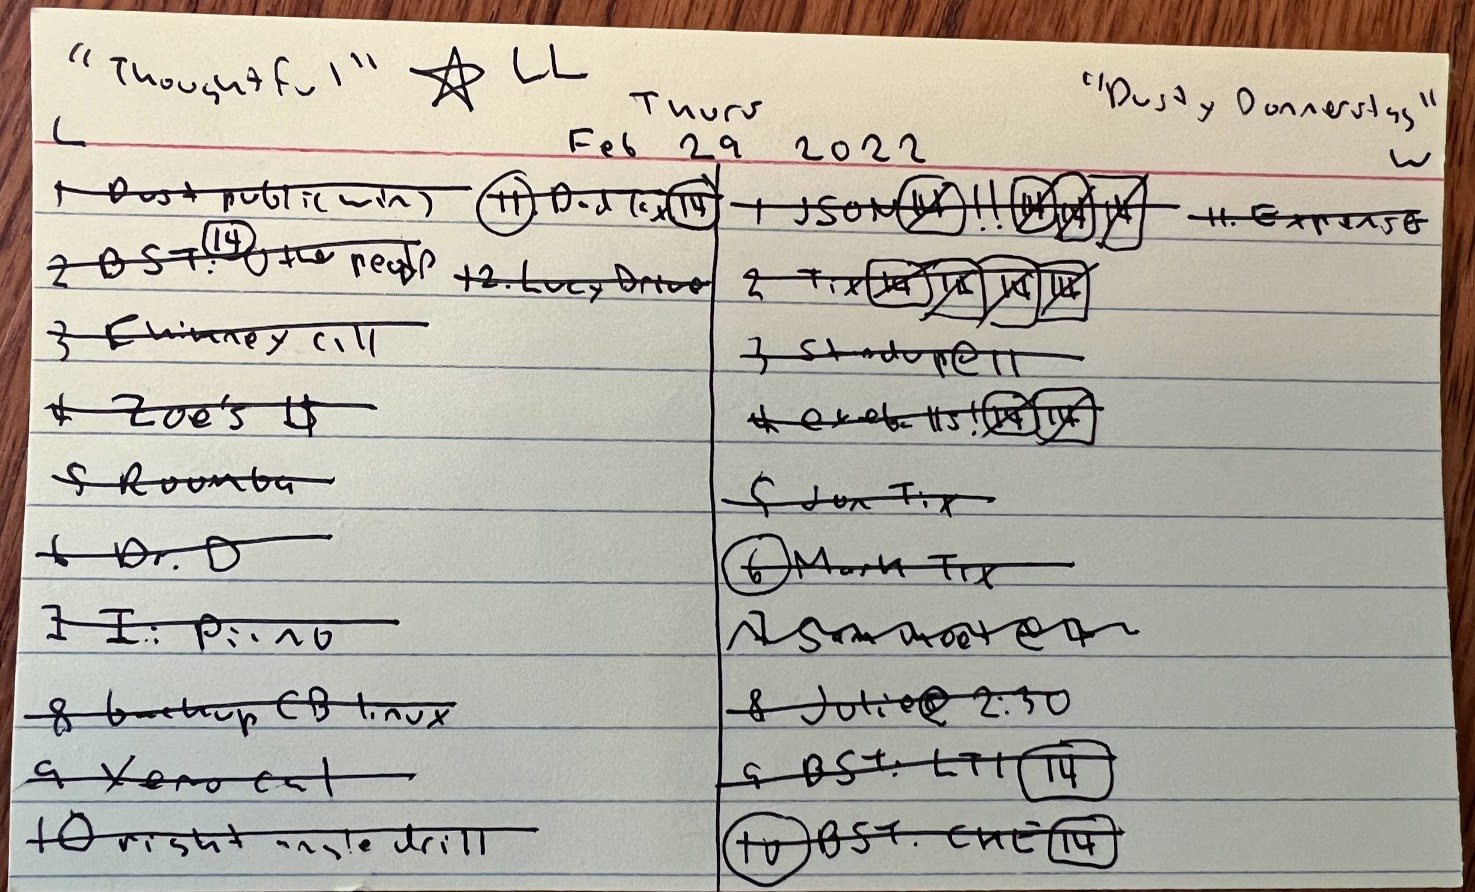 "Thoughtful" LL
"Dusty Donnerstag"
Thurs
Feb 29 2022
L
W
1 Dust public wing
2 BST: 14 the people
3 Chimney call
4 Zoe's $
5 Roomba
6 Dr. D
7 I: Piano
8 backup CB linux
9 Xeno call
10 right angle drill
11. Dad tix 14
12. Lucy Drive
1 JSON 14 !! 14 14 14
2 Tix 14 14 14 14
3 Standup @ 11
4 exeballs! 14 14
5 Jon Tix
6 Mark Tix
7 Sam meet @
8 Julie @ 2:30
9 BST. LTI 14
10 BST. CHE 14
11. Expense